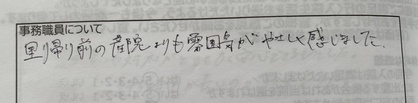 事務職員について
里り帰り前の産院よりも雰囲気がやさしく感じました。